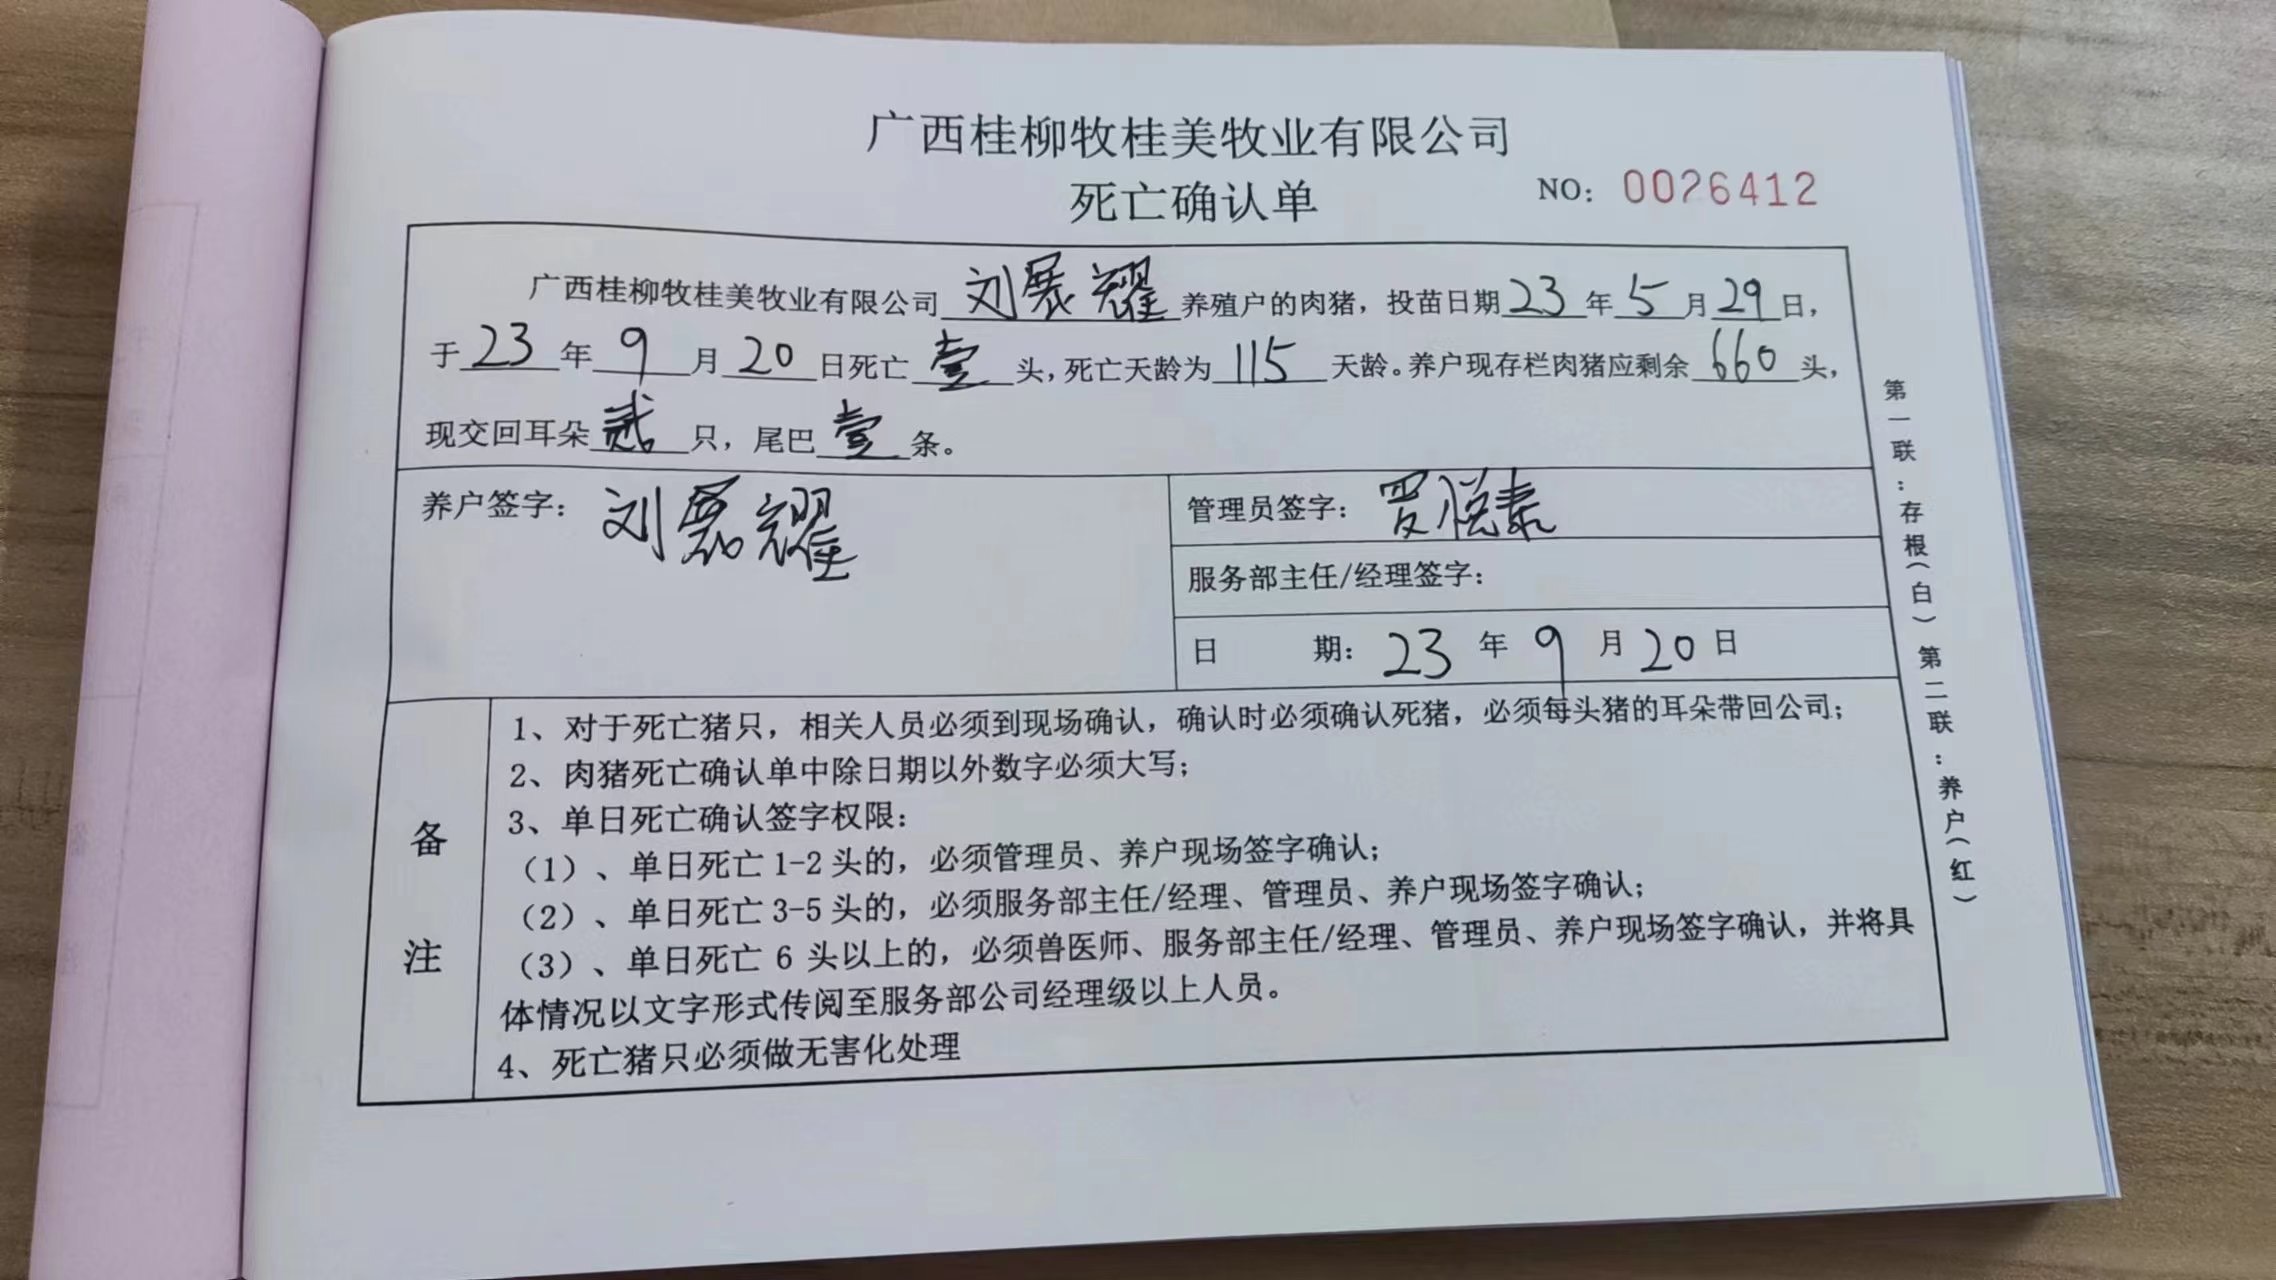 广西桂柳牧桂美牧业有限公司
死亡确认单
NO: 0026412
广西桂柳牧桂美牧业有限公司 刘展耀 养殖户的肉猪，投苗日期 23 年 5 月 29 日，
于 23 年 9 月 20 日死亡 壹 头，死亡天龄为 115 天龄。养户现存栏肉猪应剩余 660 头，
现交回耳朵 贰 只，尾巴 壹 条。
养户签字： 刘展耀
管理员签字： 覃悦泰
服务部主任/经理签字：
日 期： 23 年 9 月 20 日
备注
1、对于死亡猪只，相关人员必须到现场确认，确认时必须确认死猪，必须每头猪的耳朵带回公司；
2、肉猪死亡确认单中除日期以外数字必须大写；
3、单日死亡确认签字权限：
（1）、单日死亡 1-2 头的，必须管理员、养户现场签字确认；
（2）、单日死亡 3-5 头的，必须服务部主任/经理、管理员、养户现场签字确认；
（3）、单日死亡 6 头以上的，必须兽医师、服务部主任/经理、管理员、养户现场签字确认，并将具
体情况以文字形式传阅至服务部公司经理级以上人员。
4、死亡猪只必须做无害化处理
第一联：存根（白）第二联：养户（红）